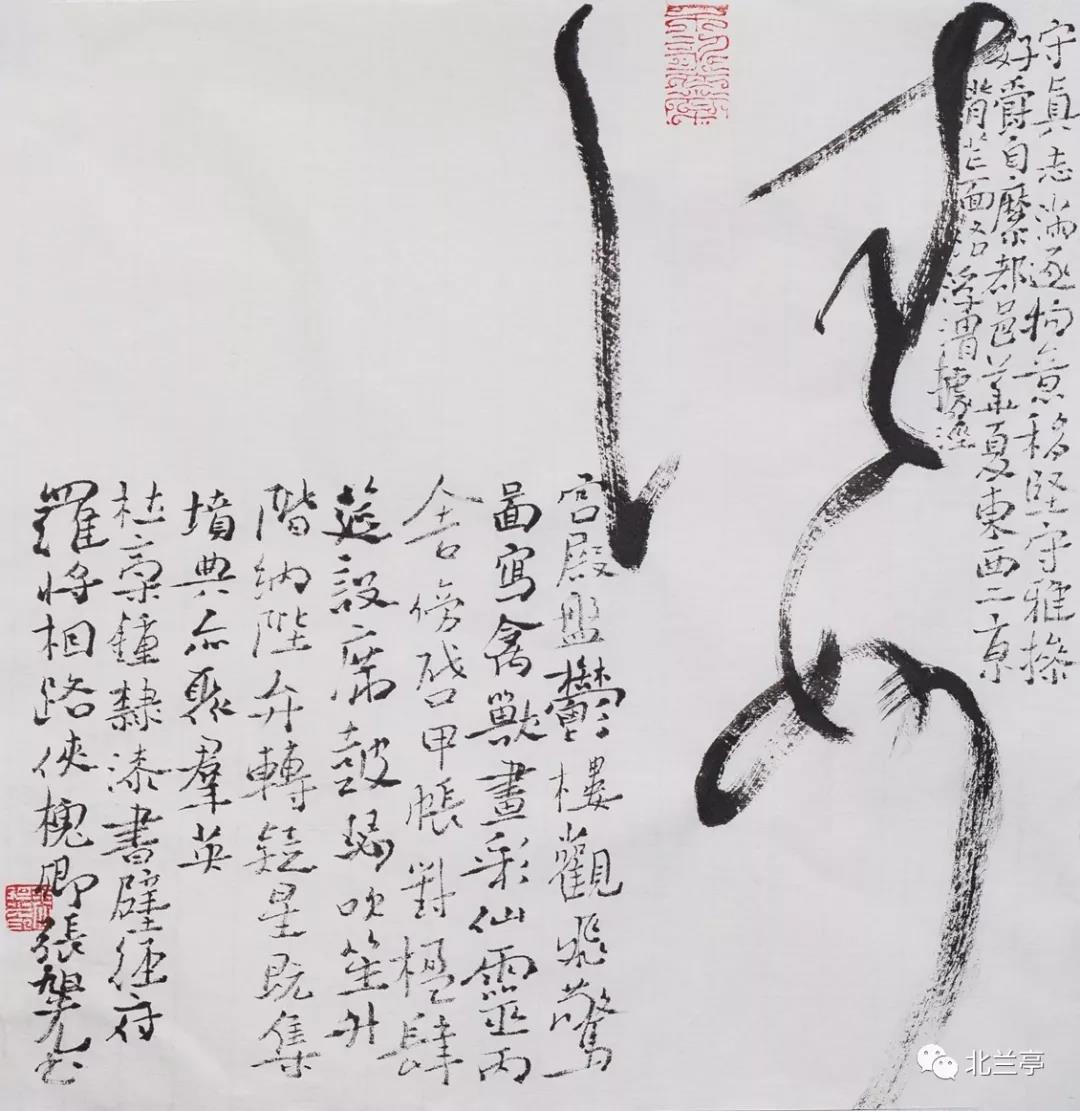 守真志滿逐物意移堅守雅操
好爵自縻都邑華夏東西二京
背芒面洛浮渭據涇
宮殿盤鬱樓觀飛驚
圖寫禽獸畫彩仙靈丙
舍傍啓甲帳對楹肆
筵設席鼓瑟吹笙升
階納陛弁轉疑星既集
墳典亦聚羣英
杜稾鍾隸漆書壁經府
羅將相路俠槐卿張旭光書
北兰亭